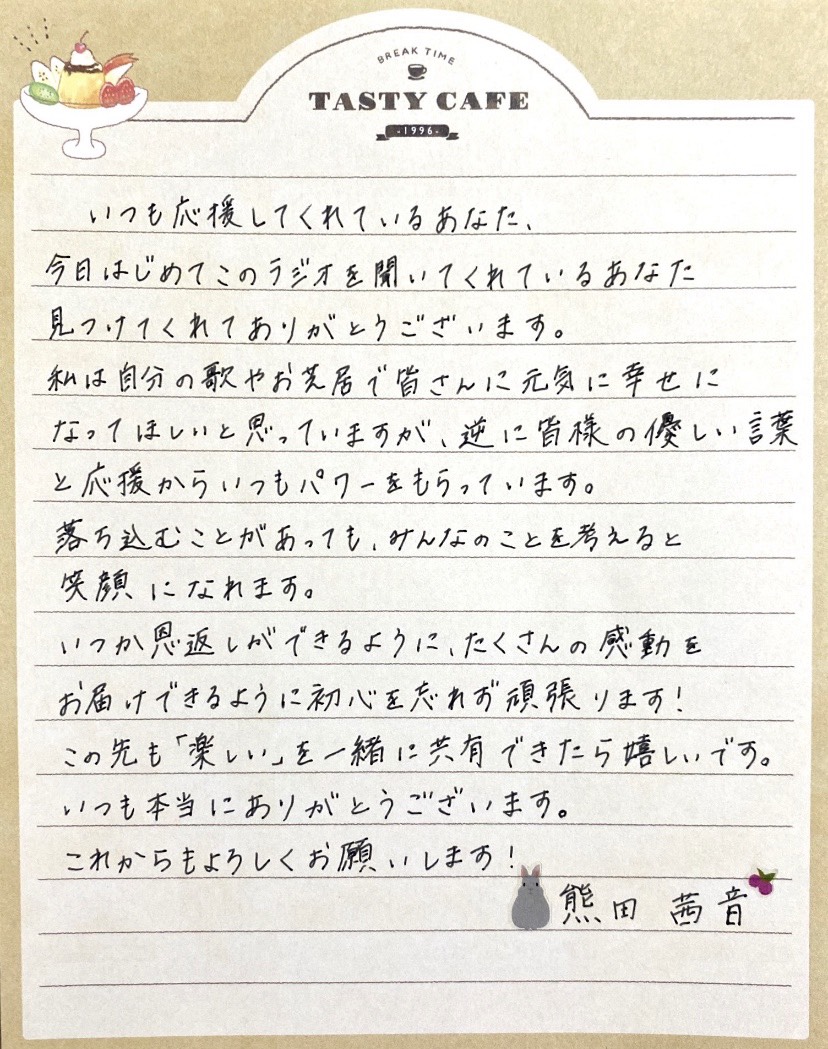 BREAK TIME
TASTY CAFE
-1996-
いつも応援してくれているあなた、
今日はじめてこのラジオを聞いてくれているあなた
見つけてくれてありがとうございます。
私は自分の歌やお芝居で皆さんに元気に幸せに
なってほしいと思っていますが、逆に皆様の優しい言葉
と応援からいつもパワーをもらっています。
落ち込むことがあっても、みんなのことを考えると
笑顔になれます。
いつか恩返しができるように、たくさんの感動を
お届けできるように初心を忘れず頑張ります!
この先も「楽しい」を一緒に共有できたら嬉しいです。
いつも本当にありがとうございます。
これからもよろしくお願いします!
熊田 茜音